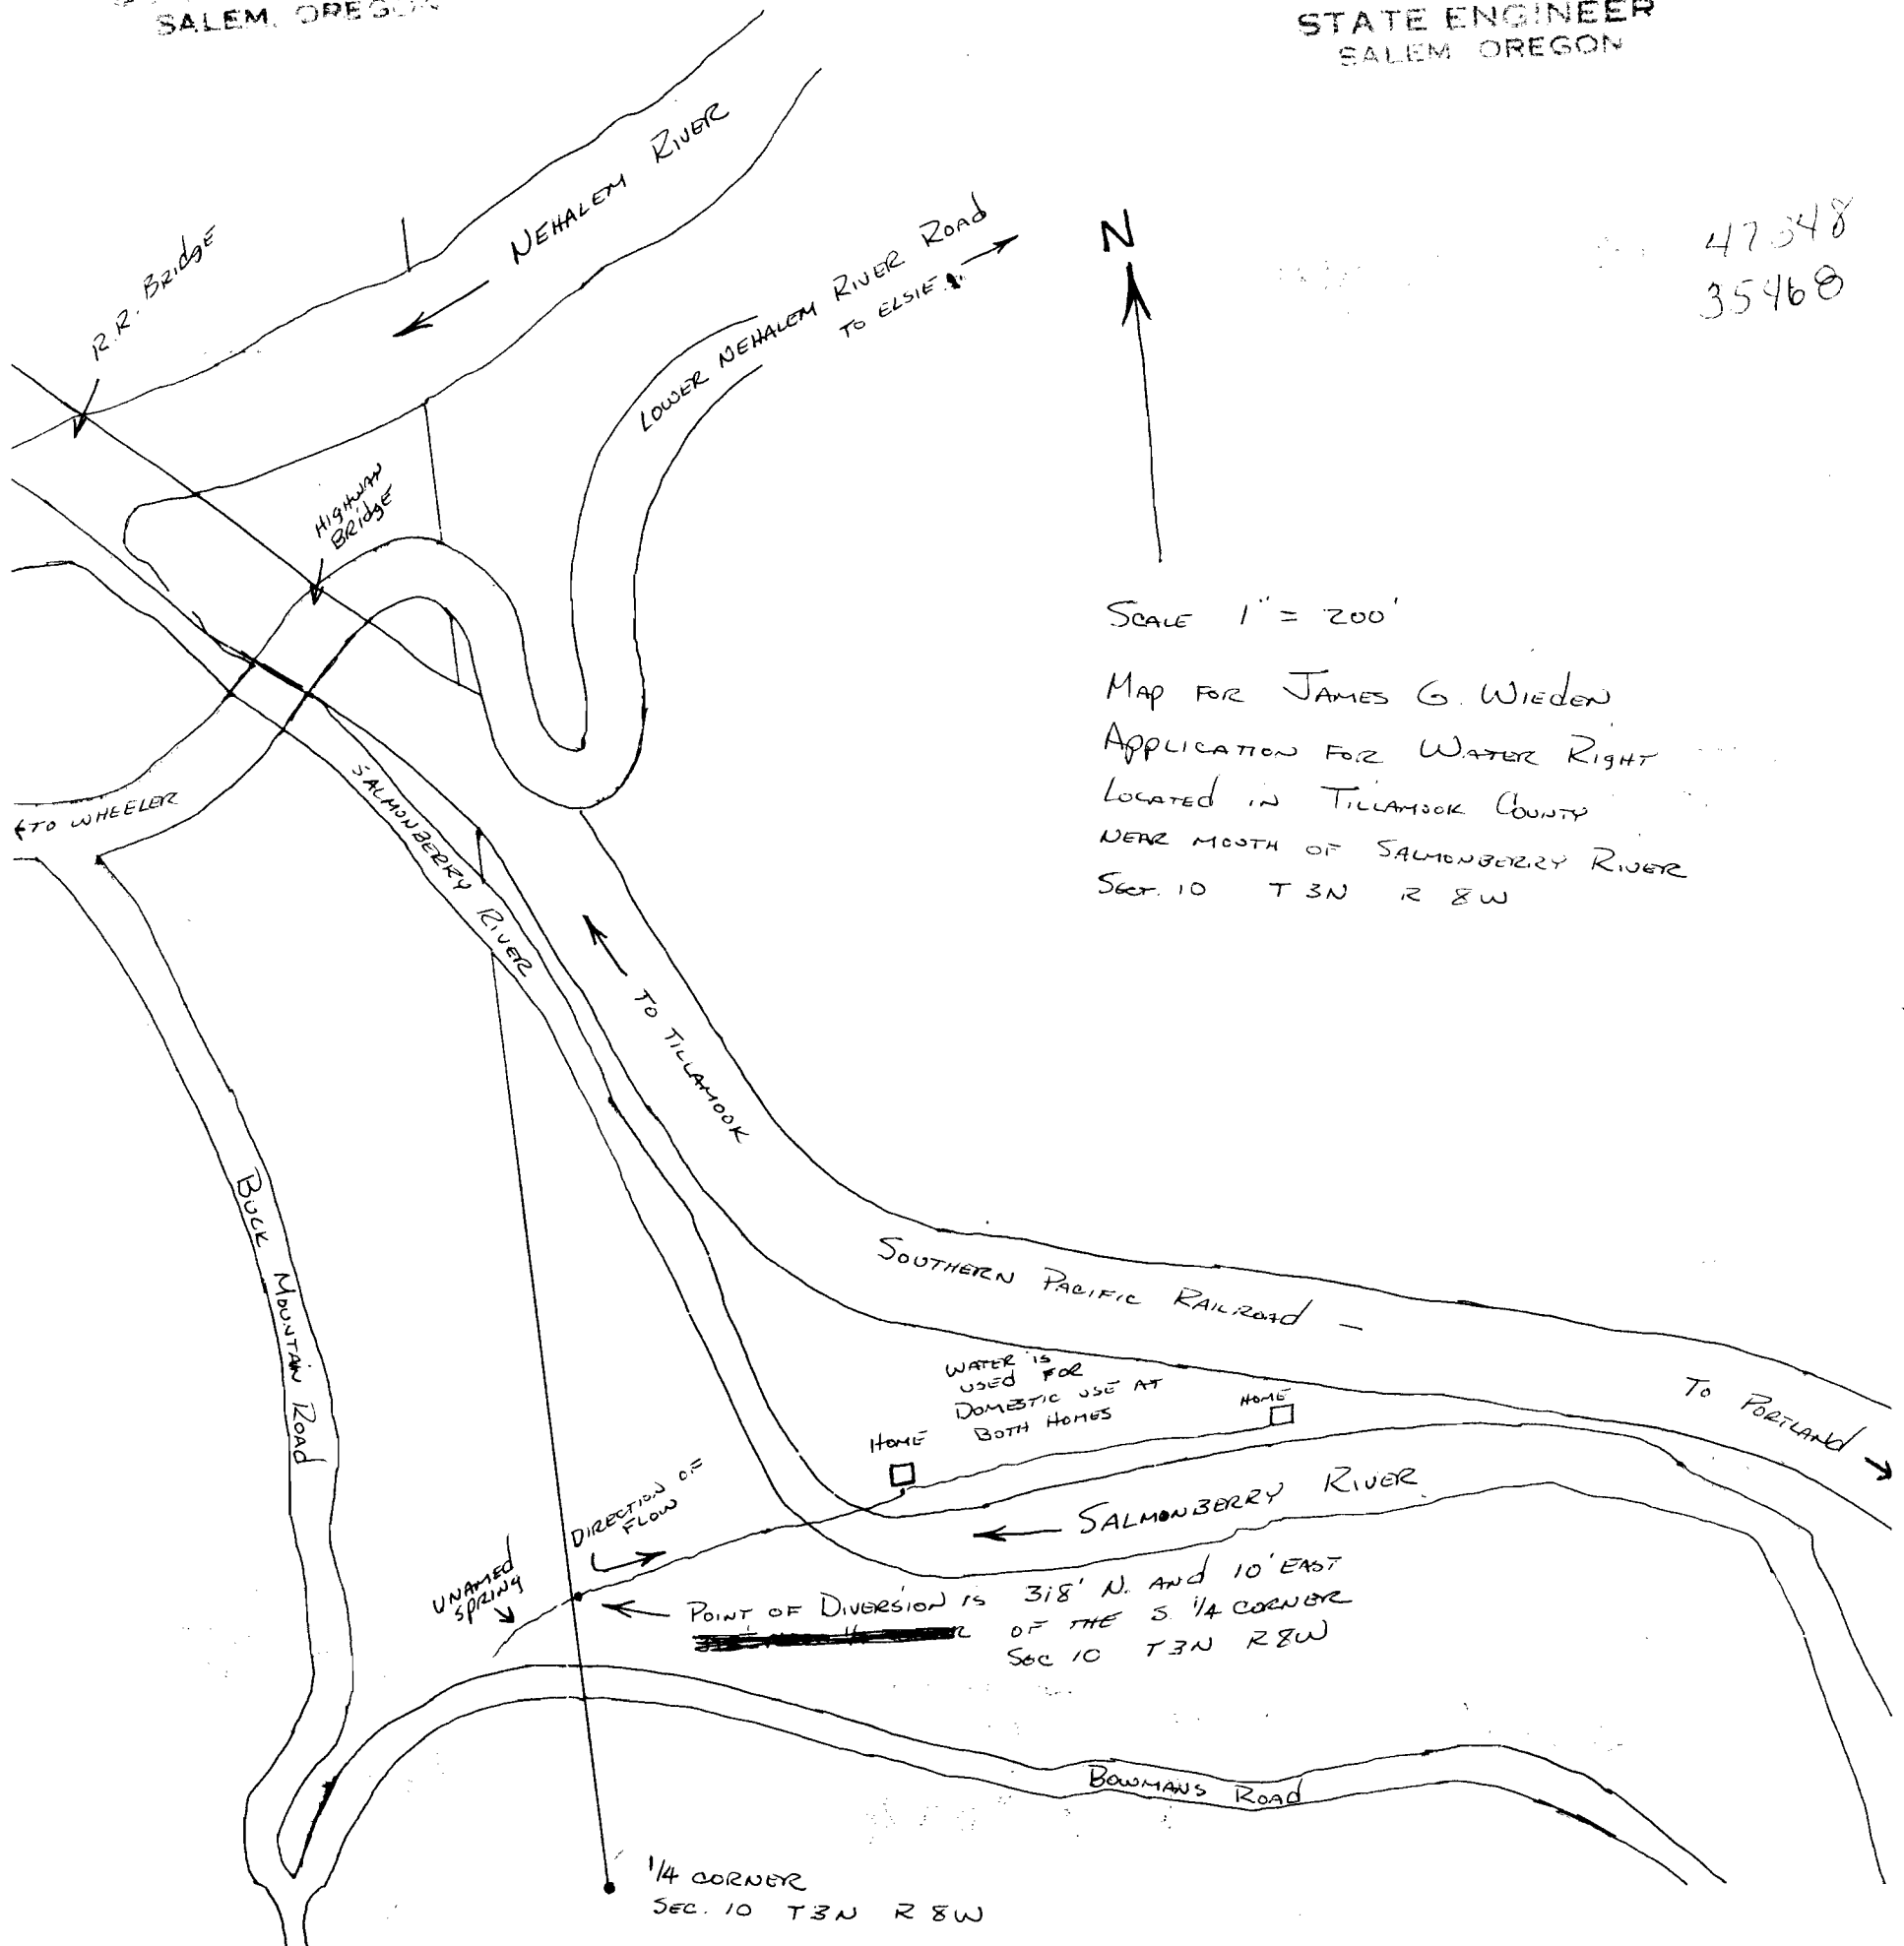 SALEM, OREGON
STATE ENGINEER
SALEM OREGON
R.R. BRIDGE
NEHALEM RIVER
LOWER NEHALEM RIVER ROAD
TO ELSIE
N
35468
HIGHWAY
BRIDGE
SCALE 1" = 200'
MAP FOR JAMES G. WIEDEN
APPLICATION FOR WATER RIGHT
LOCATED IN TILLAMOOK COUNTY
NEAR MOUTH OF SALMONBERRY RIVER
SECT. 10 T 3N R 8W
TO WHEELER
SALMONBERRY RIVER
TO TILLAMOOK
BUCK MOUNTAIN ROAD
SOUTHERN PACIFIC RAILROAD —
TO PORTLAND
WATER IS
USED FOR
DOMESTIC USE AT
BOTH HOMES
HOME
HOME
SALMONBERRY RIVER
DIRECTION OF
FLOW
UNAMED
SPRING
POINT OF DIVERSION IS 318' N. AND 10' EAST
OF THE S. 1/4 CORNER
SEC 10 T3N R8W
BOWMANS ROAD
1/4 CORNER
SEC. 10 T3N R 8W